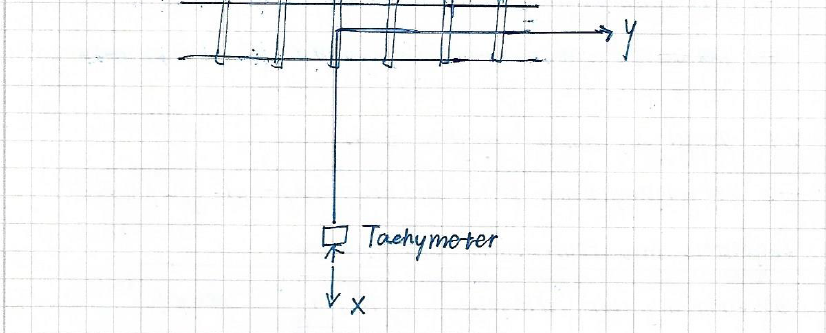 y
Tachymeter
x